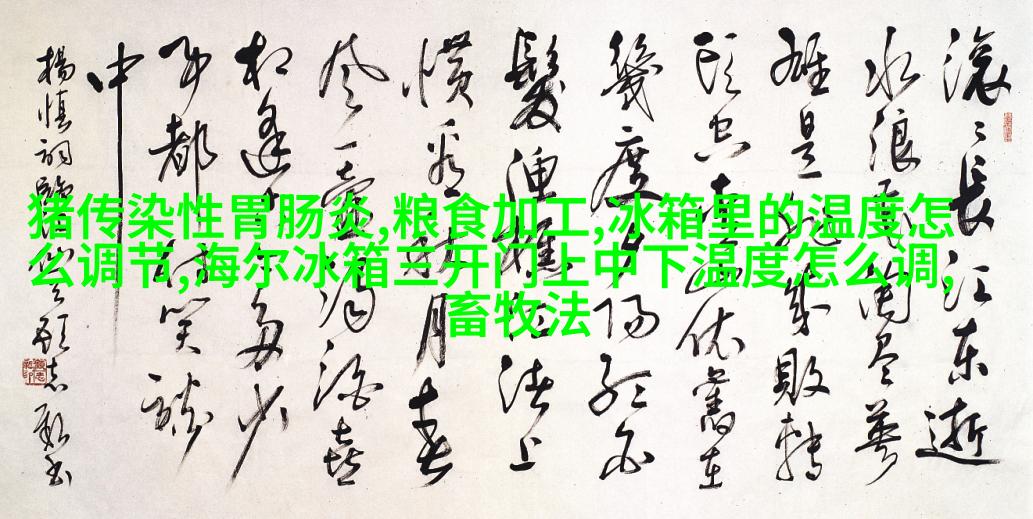 猪传染性胃肠炎,粮食加工,冰箱里的温度怎
么调节,海尔冰箱三开门上中下温度怎么调,
畜牧法
滚〻長江东逝
水浪花淘尽英
雄是非成敗轉
头空青山依舊在
幾度夕阳红白
髮渔樵江渚上
慣看秋月春
风一壶浊酒喜
相逢古今多少
事都付笑谈
中
楊慎词臨江仙